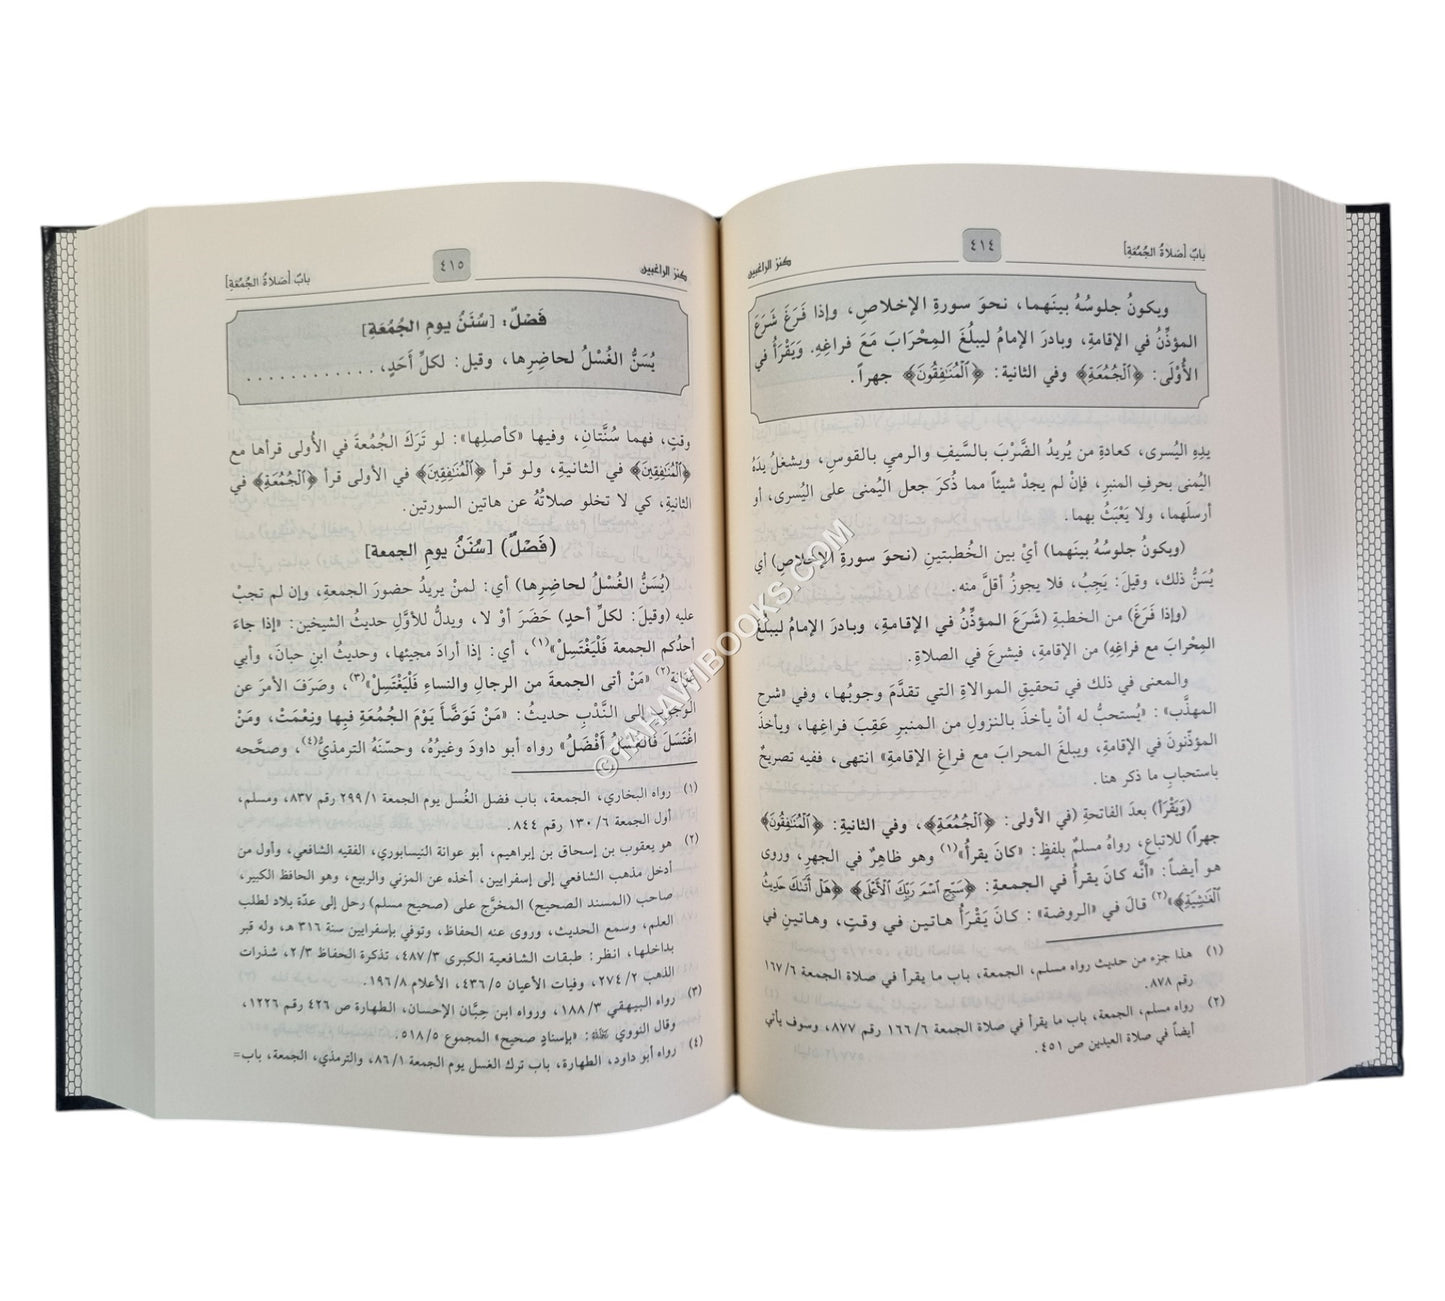 باب [صَلاَةُ الجُمُعَةِ]
٤١٤
كنز الراغبين
ويكونُ جلوسُهُ بينَهما، نحوَ سورةِ الإخلاصِ، وإذا فَرَغَ شَرَعَ
المؤذِّنُ في الإقامةِ، وبادرَ الإمامُ ليبلُغَ المِحْرَابَ مَعَ فراغِهِ. وَيَقْرَأُ في
الأُوْلَى: ﴿ٱلْجُمُعَةِ﴾ وفي الثانية: ﴿ٱلْمُنَٰفِقُونَ﴾ جهراً.
يدِهِ اليُسرى، كعادةِ من يُريدُ الضَّرْبَ بالسَّيفِ والرميِ بالقوسِ، ويشغلُ يدَهُ
اليُمنى بحرفِ المنبرِ، فإنْ لم يجدْ شيئاً مما ذُكرَ جعل اليُمنى على اليُسرى، أو
أرسلَهما، ولا يَعْبَثُ بهما.
(ويكونُ جلوسُهُ بينَهما) أيْ بين الخُطبتينِ (نحوَ سورةِ الإخلاصِ) أي
يُسَنُّ ذلك، وقيلَ: يَجِبُ، فلا يجوزُ أقلَّ منه.
(وإذا فَرَغَ) من الخطبةِ (شَرَعَ المؤذِّنُ في الإقامةِ، وبادرَ الإمامُ ليبلُغَ
المِحْرابَ مع فراغِهِ) من الإقامةِ، فيشرعَ في الصلاةِ.
والمعنى في ذلك في تحقيقِ الموالاةِ التي تقدَّمَ وجوبُها، وفي «شرح
المهذَّب»: «يُستحبُّ له أنْ يأخذَ بالنزولِ من المنبرِ عَقِبَ فراغِها، ويأخذَ
المؤذّنونَ في الإقامةِ، ويبلغَ المحرابَ مع فراغِ الإقامةِ» انتهى، ففيه تصريحٌ
باستحبابِ ما ذكر هنا.
(وَيَقْرَأ) بعدَ الفاتحةِ (في الأولى: ﴿ٱلْجُمُعَةِ﴾، وفي الثانيةِ: ﴿ٱلْمُنَٰفِقُونَ﴾
جهراً) للاتباعِ، رواهُ مسلمٌ بلفظِ: «كانَ يقرأُ»(١) وهو ظاهِرٌ في الجهرِ، وروى
هو أيضاً: «أنَّه كانَ يقرأُ في الجمعةِ: ﴿سَبِّحِ ٱسْمَ رَبِّكَ ٱلْأَعْلَى﴾ ﴿هَلْ أَتَىٰكَ حَدِيثُ
ٱلْغَٰشِيَةِ﴾»(٢) قالَ في «الروضة»: كانَ يَقْرَأُ هاتينِ في وقتٍ، وهاتينِ في
(١) هذا جزء من حديث رواه مسلم، الجمعة، باب ما يقرأ في صلاة الجمعة ١٦٧/٦
رقم ٨٧٨.
(٢) رواه مسلم، الجمعة، باب ما يقرأ في صلاة الجمعة ١٦٦/٦ رقم ٨٧٧، وسوف يأتي
أيضاً في صلاة العيدين ص ٤٥١.
كنز الراغبين
٤١٥
باب [صَلاَةُ الجُمُعَةِ]
فَصْلٌ: [سُنَنُ يومِ الجُمُعَةِ]
يُسَنُّ الغُسْلُ لحاضِرِها، وقيل: لكلِّ أَحَدٍ، . . . . . . . . . . . .
وقتٍ، فهما سُنَّتانِ، وفيها «كأصلِها»: لو تَرَكَ الجُمُعةَ في الأُولى قرأها مع
﴿ٱلْمُنَٰفِقِينَ﴾ في الثانيةِ، ولو قرأ ﴿ٱلْمُنَٰفِقِينَ﴾ في الأولى قرأ ﴿ٱلْجُمُعَةِ﴾ في
الثانيةِ، كي لا تخلو صلاتُهُ عن هاتين السورتين.
(فَصْلٌ) [سُنَنُ يومِ الجمعة]
(يُسَنُّ الغُسْلُ لحاضِرِها) أي: لمنْ يريدُ حضورَ الجمعةِ، وإن لم تجبْ
عليه (وقيلَ: لكلِّ أحدٍ) حَضَرَ أوْ لا، ويدلُّ للأوَّلِ حديثُ الشيخين: «إذا جاءَ
أحدُكم الجمعة فَلْيَغْتَسِلْ»(١)، أي: إذا أرادَ مجيئها، وحديثُ ابنِ حبانَ، وأبي
عَوَانَةَ(٢) «مَنْ أتى الجمعةَ من الرجالِ والنساءِ فَلْيَغْتَسِلْ»(٣)، وصَرَفَ الأمرَ عن
الوجوبِ إلى النَّدْبِ حديثُ: «مَنْ تَوَضَّأَ يَوْمَ الجُمُعَةِ فبِها ونِعْمَتْ، ومَنْ
اغْتَسَلَ فَالغُسْلُ أَفْضَلُ» رواه أبو داودَ وغيرُهُ، وحسّنَهُ الترمذيُّ(٤)، وصحَّحه
(١) رواه البخاري، الجمعة، باب فضل الغُسل يوم الجمعة ٢٩٩/١ رقم ٨٣٧، ومسلم،
أول الجمعة ١٣٠/٦ رقم ٨٤٤.
(٢) هو يعقوب بن إسحاق بن إبراهيم، أبو عوانة النيسابوري، الفقيه الشافعي، وأول من
أدخل مذهب الشافعي إلى إسفرايين، أخذه عن المزني والربيع، وهو الحافظ الكبير،
صاحب (المسند الصحيح) المخرَّج على (صحيح مسلم) رحل إلى عدّة بلاد لطلب
العلم، وسمع الحديث، وروى عنه الحفاظ، وتوفي بإسفرايين سنة ٣١٦ هـ، وله قبر
بداخلها، انظر: طبقات الشافعية الكبرى ٤٨٧/٣، تذكرة الحفاظ ٢/٣، شذرات
الذهب ٢٧٤/٢، وفيات الأعيان ٤٣٦/٥، الأعلام ١٩٦/٨.
(٣) رواه البيهقي ١٨٨/٣، ورواه ابن حِبَّان الإحسان، الطهارة ص ٤٢٦ رقم ١٢٢٦،
وقال النووي رحمه الله: «بإسنادٍ صحيح» المجموع ٥١٨/٥.
(٤) رواه أبو داود، الطهارة، باب ترك الغسل يوم الجمعة ٨٦/١، والترمذي، الجمعة، باب=
© TAHAWIBOOKS.COM